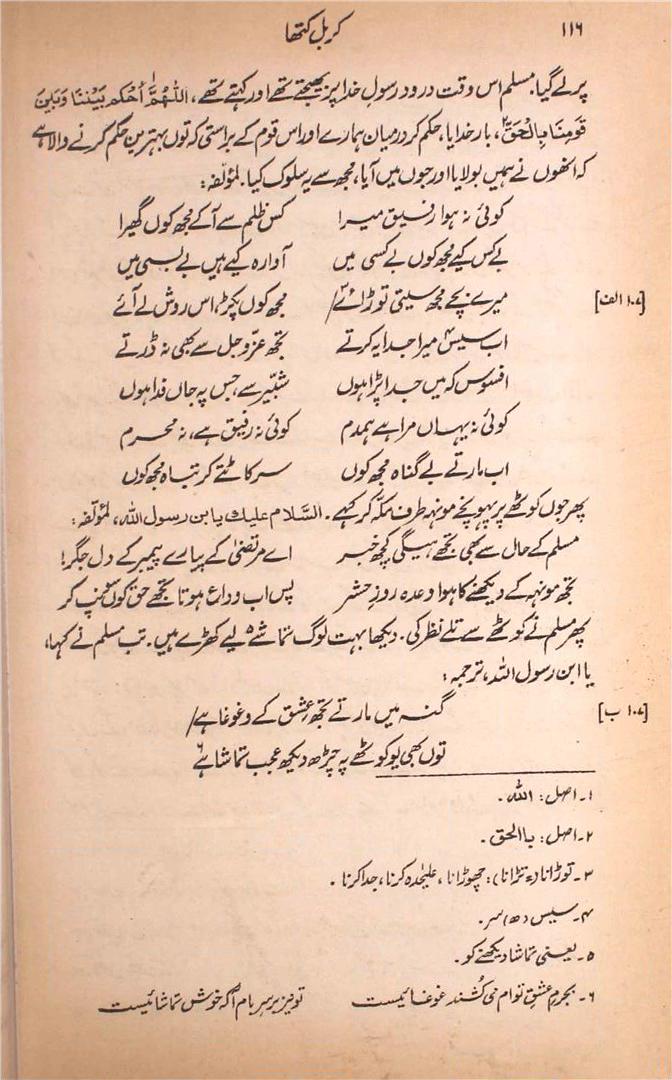 ۱۱۶ کربل کتھا
پر لے گیا۔ مسلم اس وقت درود رسولِ خدا پر بھیجتے تھے اور کہتے تھے، اَللّٰهُمَّ۱ اُحْكُم بَيْنَنَا وَبَيْنَ
قَوْمِنَا بِالْحَقِّ۲، بارِ خدایا، حکم کر درمیان ہمارے اور اس قوم کے براستی کہ توں بہترین حکم کرنے والا ہے
کہ انھوں نے ہمیں بولایا اور جوں میں آیا، مجھ سے یہ سلوک کیا۔ لمؤلّفہ:
کوئی نہ ہوا رفیق میرا کس ظلم سے آکے مجھ کوں گھیرا
بے کس کیے مجھ کوں بے کسی میں آوارہ کیے ہیں بے بسی میں
[۱۰۷ الف] میرے بچے مجھ سیتی توڑائے۳/ مجھ کوں پکڑ، اس روش لے آئے
اب سیس۴ میرا جدا یہ کرتے تجھ عزّوجل سے بھی نہ ڈرتے
افسوس کہ میں جدا پڑا ہوں شبیّر سے، جس پہ جاں فدا ہوں
کوئی نہ یہاں مرا ہے ہمدم کوئی نہ رفیق ہے، نہ محرم
اب مارتے بے گناہ مجھ کوں سر کاٹتے کر تباہ مجھ کوں
پھر جوں کوٹھے پر پہوپنچے مونہہ طرف مکّہ کر کہے۔ السّلام علیك یا بن رسول اللہ، لمؤلّفہ:
مسلم کے حال سے بھی تجھے ہیگی کچھ خبر اے مرتضیٰ کے پیارے پیمبر کے دل جگر!
تجھ مونہہ کے دیکھنے کا ہوا وعدہ روزِ حشر پس اب وداع ہوتا تجھے حق کوں سونپ کر
پھر مسلم نے کوٹھے سے تلے نظر کی۔ دیکھا بہت لوگ تماشے۵ لیے کھڑے ہیں۔ تب مسلم نے کہا،
یا ابن رسول اللہ، ترجمہ:
[۱۰۷ ب] گنہ میں مارتے تجھ عشق کے وغوغا ہے/
توں بھی یو کوٹھے پہ چڑھ دیکھ عجب تماشا ہے۶
۱۔ اصل: اللہ۔
۲۔ اصل: باالحق۔
۳۔ توڑانا (= تڑانا): چھوڑانا، علیٰحدہ کرنا، جدا کرنا۔
۴۔ سیس (ھ) سر۔
۵۔ یعنی تماشا دیکھنے کو۔
۶۔ بجرمِ عشقِ توام می کُشند غوغائیست تو نیز بر سرِ بام آ کہ خوش تماشائیست